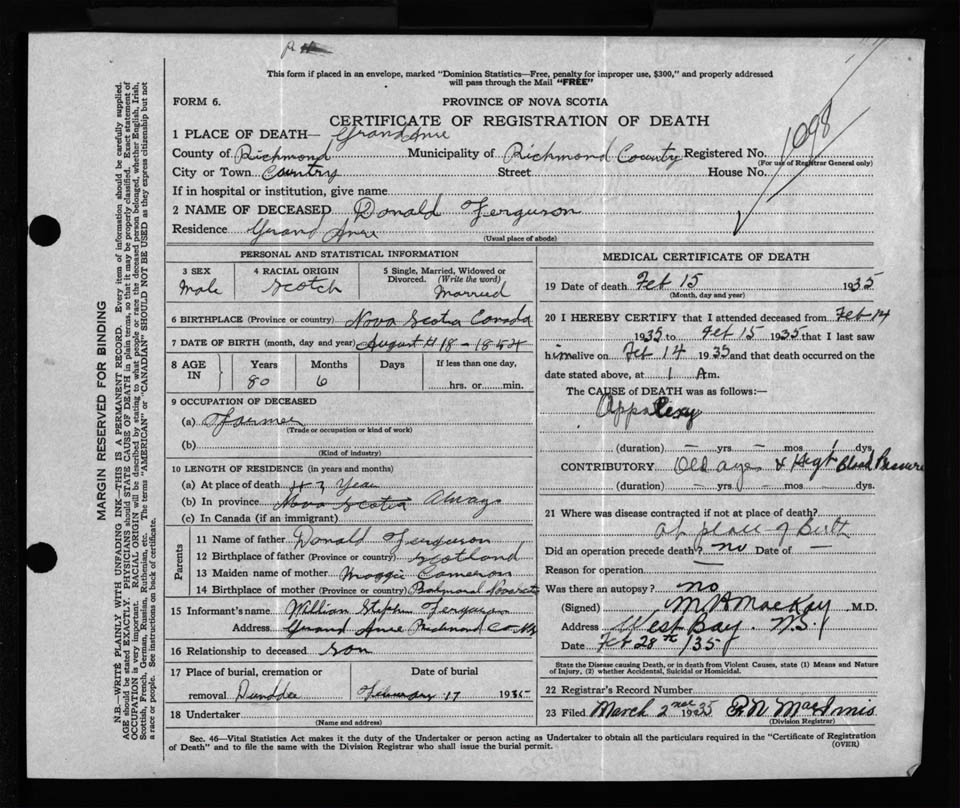 This form if placed in an envelope, marked "Dominion Statistics—Free, penalty for improper use, $300," and properly addressed
will pass through the Mail "FREE"
FORM 6.
PROVINCE OF NOVA SCOTIA
CERTIFICATE OF REGISTRATION OF DEATH
1098
1 PLACE OF DEATH— Grand Anse
County of Richmond Municipality of Richmond County Registered No.
(For use of Registrar General only)
City or Town Country Street House No.
If in hospital or institution, give name
2 NAME OF DECEASED Donald Ferguson
Residence Grand Anse
(Usual place of abode)
PERSONAL AND STATISTICAL INFORMATION
3 SEX
Male
4 RACIAL ORIGIN
Scotch
5 Single, Married, Widowed or
Divorced. (Write the word)
Married
6 BIRTHPLACE (Province or country) Nova Scotia Canada
7 DATE OF BIRTH (month, day and year) August 18-1854
8 AGE
IN
Years
80
Months
6
Days
If less than one day,
hrs. or min.
9 OCCUPATION OF DECEASED
(a) Farmer
(Trade or occupation or kind of work)
(b)
(Kind of industry)
10 LENGTH OF RESIDENCE (in years and months)
(a) At place of death Year
(b) In province Nova Scotia Always
(c) In Canada (if an immigrant)
Parents
11 Name of father Donald Ferguson
12 Birthplace of father (Province or country) Scotland
13 Maiden name of mother Maggie Cameron
14 Birthplace of mother (Province or country) Balmoral
15 Informant's name William Stephen Ferguson
Address Grand Anse Richmond Co NS
16 Relationship to deceased son
17 Place of burial, cremation or
removal Dundee
Date of burial
February 17 1935
18 Undertaker
(Name and address)
MEDICAL CERTIFICATE OF DEATH
19 Date of death Feb 15 1935
(Month, day and year)
20 I HEREBY CERTIFY that I attended deceased from Feb 14
1935 to Feb 15 1935 that I last saw
him alive on Feb 14 1935 and that death occurred on the
date stated above, at 1 A m.
The CAUSE OF DEATH was as follows:—
Appoplexy
(duration) – yrs – mos dys
CONTRIBUTORY Old age & High Blood Pressure
(duration) – yrs – mos. dys.
21 Where was disease contracted if not at place of death?
at place of Birth
Did an operation precede death? no Date of –
Reason for operation –
Was there an autopsy? no
(Signed) MacKay M.D.
Address West Bay. N.S.
Date Feb 28th /35
State the Disease causing Death, or in death from Violent Causes, state (1) Means and Nature
of Injury, (2) whether Accidental, Suicidal or Homicidal.
22 Registrar's Record Number
23 Filed March 2nd 1935 MacInnis
(Division Registrar)
Sec. 46—Vital Statistics Act makes it the duty of the Undertaker or person acting as Undertaker to obtain all the particulars required in the "Certificate of Registration
of Death" and to file the same with the Division Registrar who shall issue the burial permit.
(OVER)
MARGIN RESERVED FOR BINDING
N.B.—WRITE PLAINLY, WITH UNFADING INK—THIS IS A PERMANENT RECORD. Every item of information should be carefully supplied.
AGE should be stated EXACTLY. PHYSICIANS should STATE CAUSE OF DEATH in plain terms, so that it may be properly classified. Exact statement of
OCCUPATION is very important. RACIAL ORIGIN will be described by stating to what people or race the deceased person belonged, whether English, Irish,
Scottish, French, German, Russian, Ruthenian, etc. The terms "AMERICAN" or "CANADIAN" SHOULD NOT BE USED as they express citizenship but not
a race or people. See instructions on back of certificate.